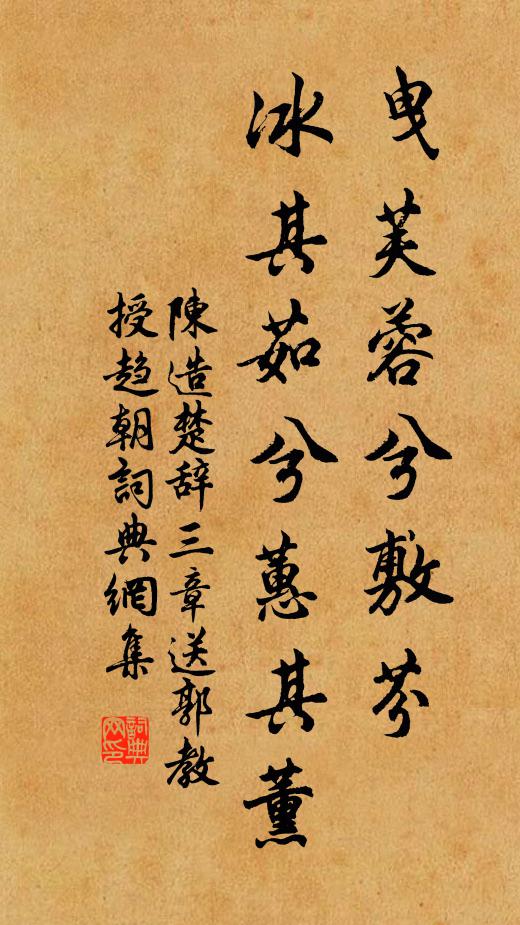 曳芙蓉兮敷芬
冰其茹兮蕙其薰
陳造楚辞三章送郭教
授趋朝詞典網集
詞典
网印